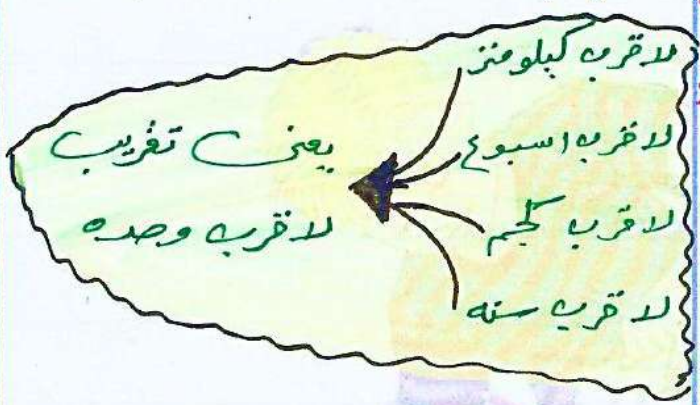 لاقرب كيلومتر
لاقرب اسبوع
لاقرب كجم
لاقرب سنه
يعنى تقريب
لاقرب وحده